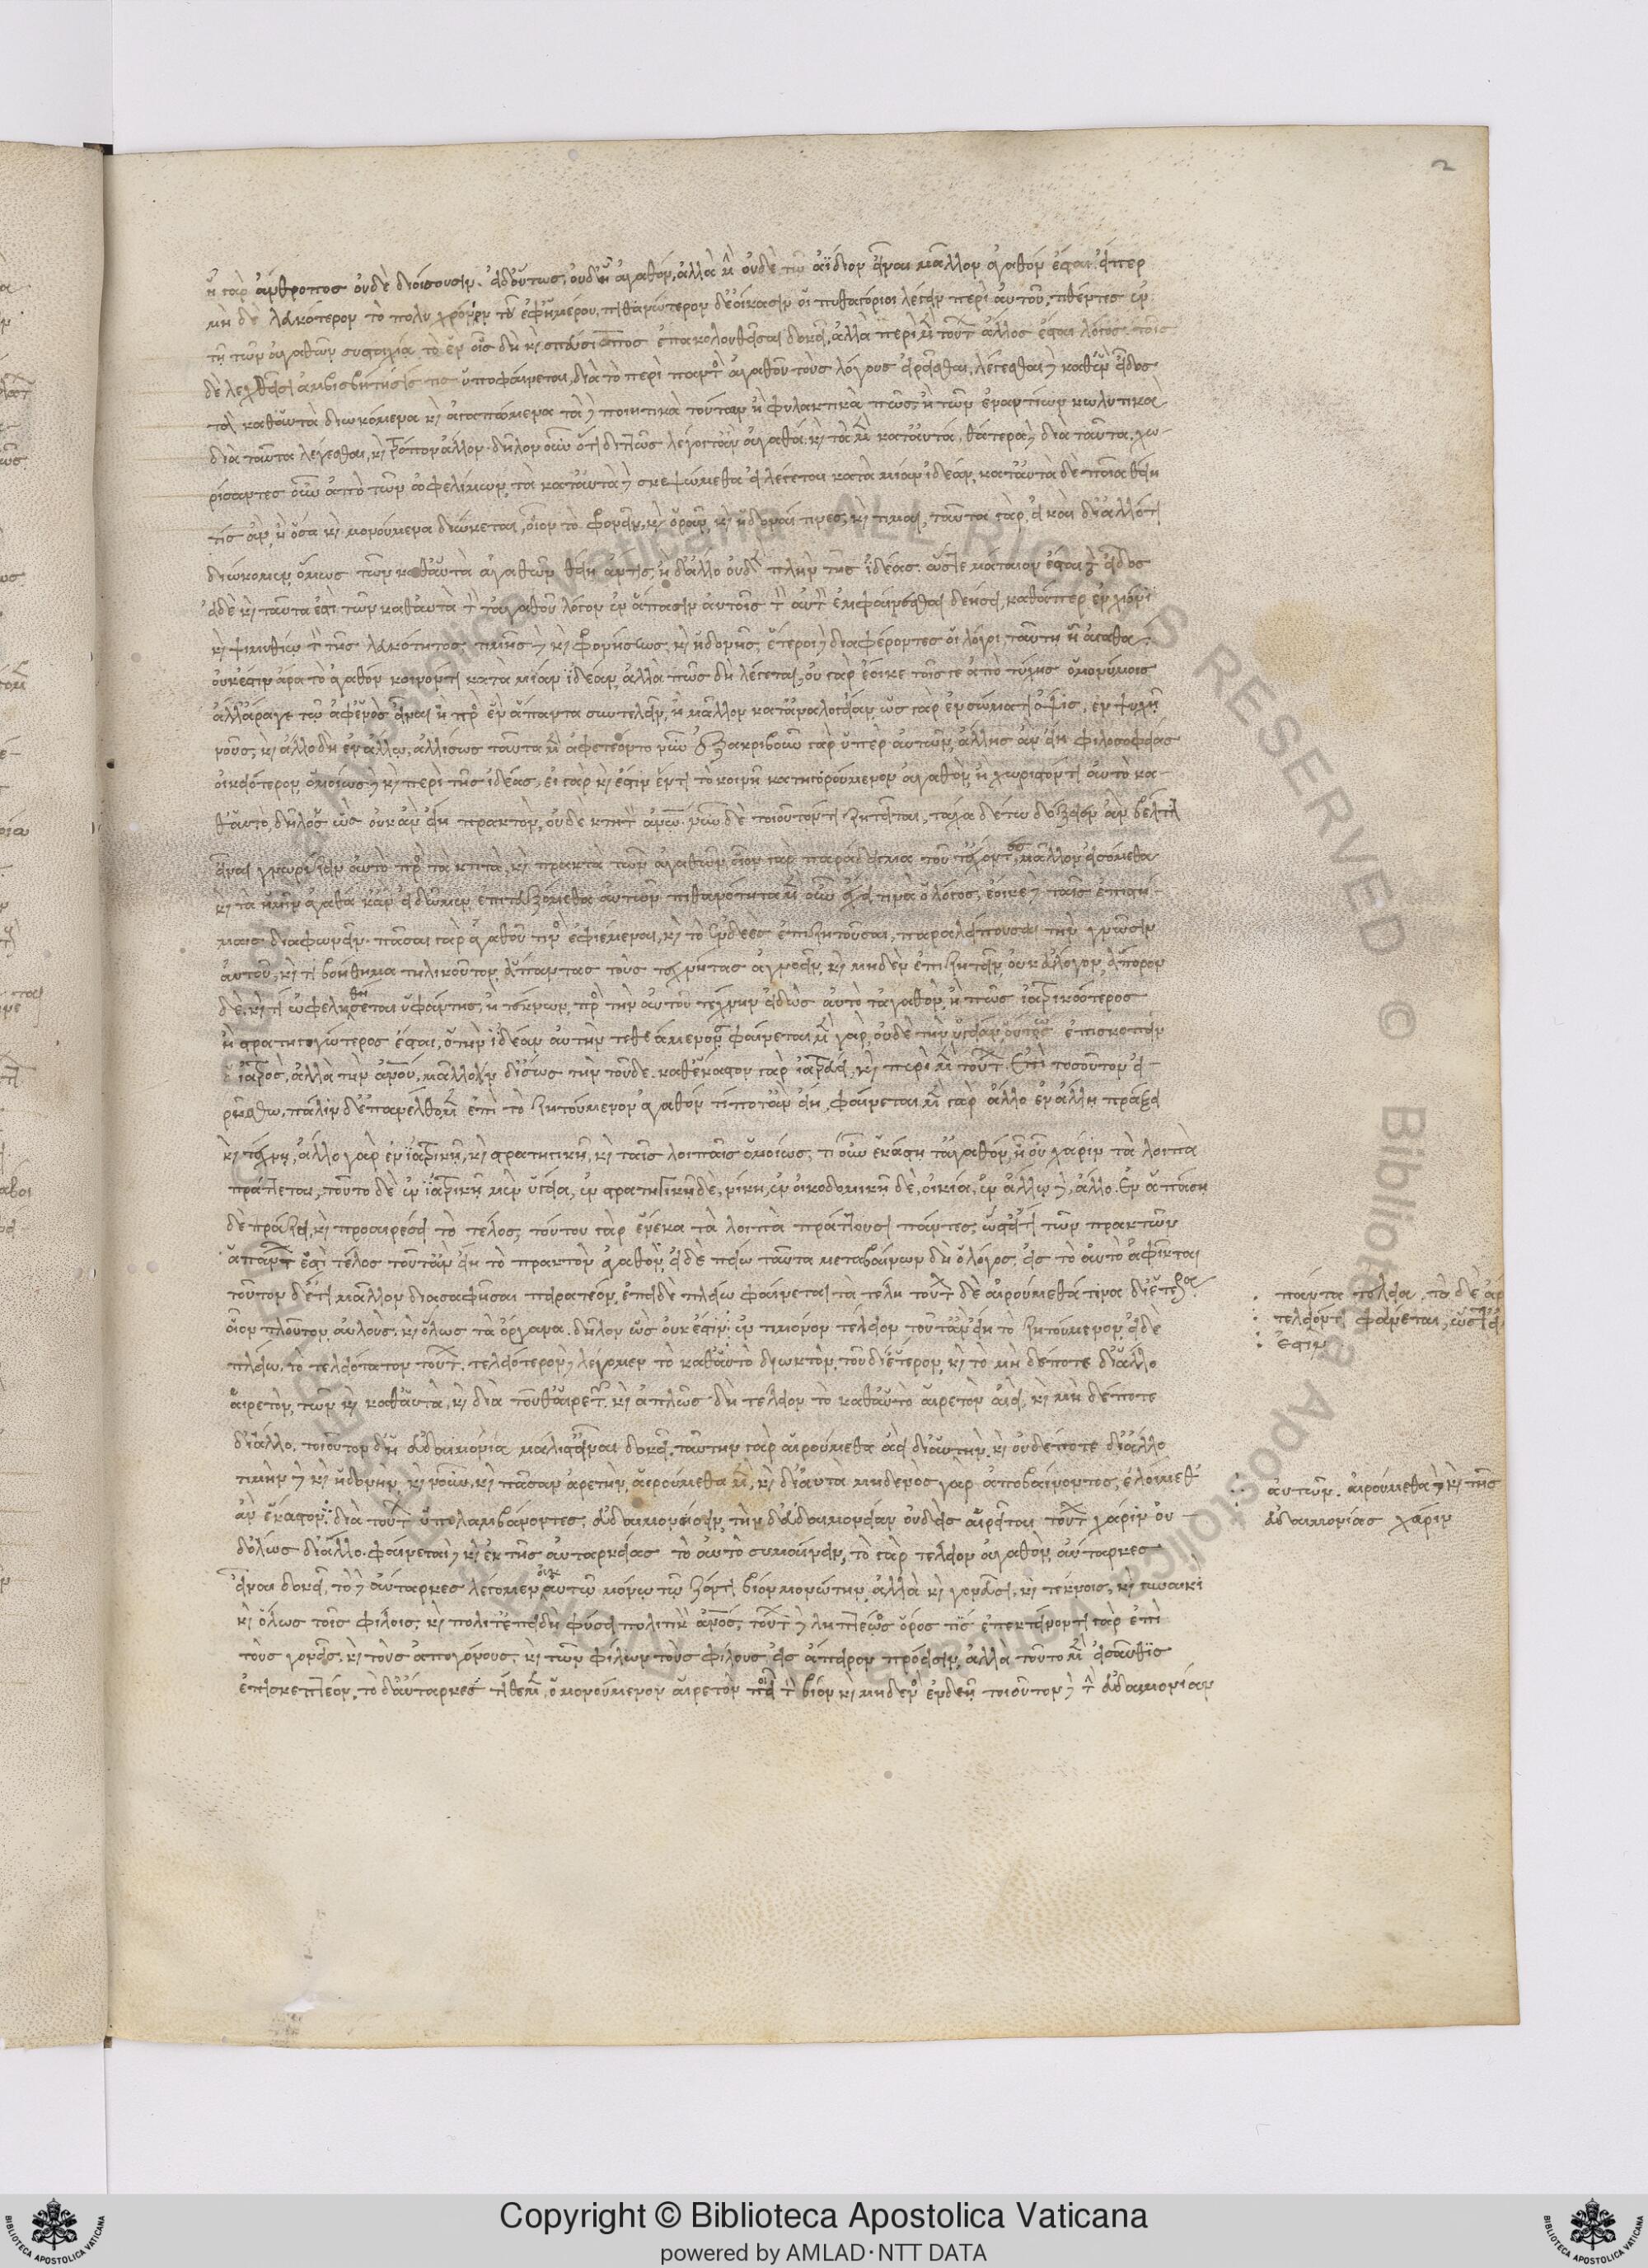 2
ᾗ γὰρ ἄνθρωπος οὐδὲ διοίσουσιν. εἰ δ' οὕτως, οὐδ' ᾗ ἀγαθόν. ἀλλὰ μὴν οὐδὲ τῷ ἀΐδιον εἶναι μᾶλλον ἀγαθὸν ἔσται. εἴπερ
μὴ δὲ λευκότερον τὸ πολυχρόνιον τοῦ ἐφημέρου. πιθανώτερον δ' ἐοίκασιν οἱ πυθαγόριοι λέγειν περὶ αὐτοῦ, τιθέντες ἐν
τῇ τῶν ἀγαθῶν συστοιχίᾳ τὸ ἓν οἷς δὴ καὶ σπεύσιππος ἐπακολουθῆσαι δοκεῖ. ἀλλὰ περὶ μὲν τούτων ἄλλος ἔσται λόγος. τοῖς
δὲ λεχθεῖσιν ἀμφισβήτησίς τις ὑποφαίνεται, διὰ τὸ περὶ παντὸς ἀγαθοῦ τοὺς λόγους εἰρῆσθαι. λέγεσθαι δὲ καθ' ἓν εἶδος
τὰ καθ' αὑτὰ διωκόμενα καὶ ἀγαπώμενα τὰ δὲ ποιητικὰ τούτων ἢ φυλακτικά πως, ἢ τῶν ἐναντίων κωλυτικὰ
διὰ ταῦτα λέγεσθαι, καὶ τρόπον ἄλλον. δῆλον οὖν ὅτι διττῶς λέγοιτ' ἂν ἀγαθά. καὶ τὰ μὲν καθ' αὑτά, θάτερα δὲ διὰ ταῦτα. χω-
ρίσαντες οὖν ἀπὸ τῶν ὠφελίμων, τὰ καθ' αὑτὰ σκεψώμεθα εἰ λέγεται κατὰ μίαν ἰδέαν. καθ' αὑτὰ δὲ ποῖα θείη
τίς ἄν, ἢ ὅσα καὶ μονούμενα διώκεται, οἷον τὸ φρονεῖν, καὶ ὁρᾶν, καὶ ἡδοναί τινες, καὶ τιμαί, ταῦτα γὰρ εἰ καὶ δι' ἄλλό τι
διώκομεν, ὅμως τῶν καθ' αὑτὰ ἀγαθῶν θείη ἄν τις, ἢ δ' ἄλλο οὐδὲν πλὴν τῆς ἰδέας. ὥστε μάταιον ἔσται τὸ εἶδος
εἰ δὲ καὶ ταῦτα ἐστὶ τῶν καθ' αὑτὰ τὸν τἀγαθοῦ λόγον ἐν ἅπασιν αὐτοῖς τὸν αὐτὸν ἐμφαίνεσθαι δεήσει, καθάπερ ἐν χιόνι
καὶ ψιμυθίῳ τὸν τῆς λευκότητος. τιμῆς δὲ καὶ φρονήσεως καὶ ἡδονῆς, ἕτεροι δὲ διαφέροντες οἱ λόγοι ταύτῃ ᾗ ἀγαθά.
οὐκ ἔστιν ἄρα τὸ ἀγαθὸν κοινόν τι κατὰ μίαν ἰδέαν, ἀλλὰ πῶς δὴ λέγεται, οὐ γὰρ ἔοικε τοῖς γε ἀπὸ τύχης ὁμωνύμοις
ἀλλ' ἆρά γε τῷ ἀφ' ἑνὸς εἶναι ἢ πρὸς ἓν ἅπαντα συντελεῖν, ἢ μᾶλλον κατ' ἀναλογίαν, ὡς γὰρ ἐν σώματι ὄψις, ἐν ψυχῇ
νοῦς, καὶ ἄλλο δὴ ἐν ἄλλῳ. ἀλλ' ἴσως ταῦτα μὲν ἀφετέον τὸ νῦν ἐξακριβοῦν γὰρ ὑπὲρ αὐτῶν, ἄλλης ἂν εἴη φιλοσοφίας
οἰκειότερον, ὁμοίως δὲ καὶ περὶ τῆς ἰδέας. εἰ γὰρ καὶ ἔστιν ἕν τι τὸ κοινῇ κατηγορούμενον ἀγαθόν, ἢ χωριστόν τι αὐτὸ κα-
θ' αὑτό, δῆλον ὡς οὐκ ἂν εἴη πρακτὸν, οὐδὲ κτητὸν ἀνθρώπῳ. νῦν δὲ τοιοῦτόν τι ζητεῖται, τάχα δέ τῳ δόξειεν ἂν βέλτιον
εἶναι γνωρίζειν αὐτὸ πρὸς τὰ κτητὰ καὶ πρακτὰ τῶν ἀγαθῶν, οἷον γὰρ παράδειγμα τοῦτ' ἔχοντες, μᾶλλον εἰσόμεθα
καὶ τὰ ἡμῖν ἀγαθά, κἂν εἰδῶμεν, ἐπιτευξόμεθα αὐτῶν. πιθανότητα μὲν οὖν ἔχει τινὰ ὁ λόγος, ἔοικε δὲ ταῖς ἐπιστή-
μαις διαφωνεῖν. πᾶσαι γὰρ ἀγαθοῦ τινὸς ἐφιέμεναι, καὶ τὸ ἐνδεὲς ἐπιζητοῦσαι, παραλείπουσι τὴν γνῶσιν
αὐτοῦ, καί τι βοήθημα τηλικοῦτον, ἅπαντας τοὺς τεχνίτας ἀγνοεῖν, καὶ μηδὲν ἐπιζητεῖν, οὐκ εὔλογον, ἄπορον
δὲ καὶ τί ὠφεληθήσεται ὑφάντης, ἢ τέκτων, πρὸς τὴν αὑτοῦ τέχνην εἰδὼς αὐτὸ τἀγαθόν, ἢ πῶς ἰατρικώτερος
ἢ στρατηγικώτερος ἔσται, ὁ τὴν ἰδέαν αὐτὴν τεθεαμένος. φαίνεται μὲν γὰρ, οὐδὲ τὴν ὑγίειαν οὕτως ἐπισκοπεῖν
ὁ ἰατρός, ἀλλὰ τὴν ἀνθρώπου, μᾶλλον δ' ἴσως τὴν τοῦδε. καθ' ἕκαστον γὰρ ἰατρεύει, καὶ περὶ μὲν τούτων ἐπὶ τοσοῦτον εἰ-
ρήσθω. πάλιν δ' ἐπανέλθωμεν ἐπὶ τὸ ζητούμενον ἀγαθὸν τί ποτ' ἂν εἴη. φαίνεται μὲν γὰρ ἄλλο ἐν ἄλλῃ πράξει
καὶ τέχνῃ, ἄλλο γὰρ ἐν ἰατρικῇ, καὶ στρατηγικῇ, καὶ ταῖς λοιπαῖς ὁμοίως, τί οὖν ἑκάστῃ τἀγαθόν, ἢ οὗ χάριν τὰ λοιπὰ
πράττεται, τοῦτο δὲ ἐν ἰατρικῇ μὲν ὑγίεια, ἐν στρατηγικῇ δὲ, νίκη, ἐν οἰκοδομικῇ δὲ, οἰκία, ἐν ἄλλῳ δὲ, ἄλλο. Ἐν ἁπάσῃ
δὲ πράξει, καὶ προαιρέσει τὸ τέλος, τούτου γὰρ ἕνεκα τὰ λοιπὰ πράττουσι πάντες, ὥστ' εἴ τι τῶν πρακτῶν
ἁπάντων ἐστὶ τέλος τοῦτ' ἂν εἴη τὸ πρακτὸν ἀγαθόν, εἰ δὲ πλείω ταῦτα μεταβαίνων δὴ ὁ λόγος εἰς τὸ αὐτὸ ἀφῖκται
τοῦτον δ' ἔτι μᾶλλον διασαφῆσαι πειρατέον. ἐπεὶ δὲ πλείω φαίνεται τὰ τέλη τούτων δὲ αἱρούμεθά τινα δι' ἕτερον
οἷον πλοῦτον, αὐλοὺς, καὶ ὅλως τὰ ὄργανα. δῆλον ὡς οὐκ ἔστιν ἕν τι μόνον τέλειον τοῦτ' ἂν εἴη τὸ ζητούμενον, εἰ δὲ
πλείω, τὸ τελειότατον τούτων. τελειότερον δὲ λέγομεν τὸ καθ' αὑτὸ διωκτὸν, τοῦ δι' ἕτερον, καὶ τὸ μὴ δέποτε δι' ἄλλο
αἱρετὸν, τῶν καὶ καθ' αὑτὰ, καὶ διὰ τοῦθ' αἱρετῶν. καὶ ἁπλῶς δὴ τέλειον τὸ καθ' αὑτὸ αἱρετὸν ἀεί, καὶ μὴ δέποτε
δι' ἄλλο. τοιοῦτον δ' ἡ εὐδαιμονία μάλιστ' εἶναι δοκεῖ. ταύτην γὰρ αἱρούμεθα ἀεὶ δι' αὑτὴν, καὶ οὐδέποτε δι' ἄλλο
τιμὴν δὲ καὶ ἡδονὴν, καὶ νοῦν, καὶ πᾶσαν ἀρετὴν, αἱρούμεθα μὲν, καὶ δι' αὑτὰ μηδενὸς γὰρ ἀποβαίνοντος, ἑλοίμεθ'
ἂν ἕκαστον διὰ τούτων ὑπολαμβάνοντες εὐδαιμονήσειν, τὴν δ' εὐδαιμονίαν οὐδεὶς αἱρεῖται τούτων χάριν οὐ-
δ' ὅλως δι' ἄλλο. φαίνεται δὲ καὶ ἐκ τῆς αὐταρκείας τὸ αὐτὸ συμβαίνειν, τὸ γὰρ τέλειον ἀγαθὸν, αὔταρκες
εἶναι δοκεῖ, τὸ δὲ αὔταρκες λέγομεν οὐκ αὐτῷ μόνῳ τῷ ζῶντι βίον μονώτην, ἀλλὰ καὶ γονεῦσι, καὶ τέκνοις, καὶ γυναικὶ
καὶ ὅλως τοῖς φίλοις, καὶ πολίταις ἐπειδὴ φύσει πολιτικὸν ἄνθρωπος, τούτων δὲ ληπτέος ὅρος τίς ἐπεκτείνοντι γὰρ ἐπὶ
τοὺς γονεῖς, καὶ τοὺς ἀπογόνους, καὶ τῶν φίλων τοὺς φίλους, εἰς ἄπειρον πρόεισιν, ἀλλὰ τοῦτο μὲν εἰσαῦθις
ἐπισκεπτέον, τὸ δ' αὔταρκες τίθεμεν, ὃ μονούμενον αἱρετὸν ποιεῖ τὸν βίον καὶ μηδενὸς ἐνδεῆ τοιοῦτον δὲ τὴν εὐδαιμονίαν
πάντα τέλεια, τὸ δὲ ἄρ
τέλειόν τι φαίνεται, ὥστ' εἰ
ἔστιν
αὐτῶν. αἱρούμεθα δὲ καὶ τῆς
εὐδαιμονίας χάριν
Copyright © Biblioteca Apostolica Vaticana
powered by AMLAD·NTT DATA